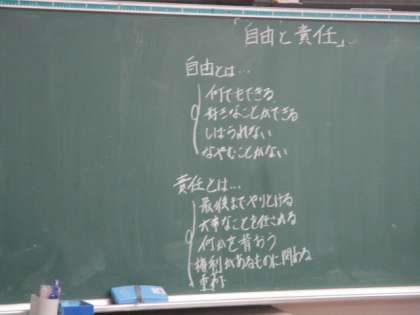 「自由と責任」
自由とは…
何でもできる
好きなことができる
しばられない
なやむことがない
責任とは…
最後までやりとげる
大事なことを任される
何かを背おう
権利があるものに関わる
重荷